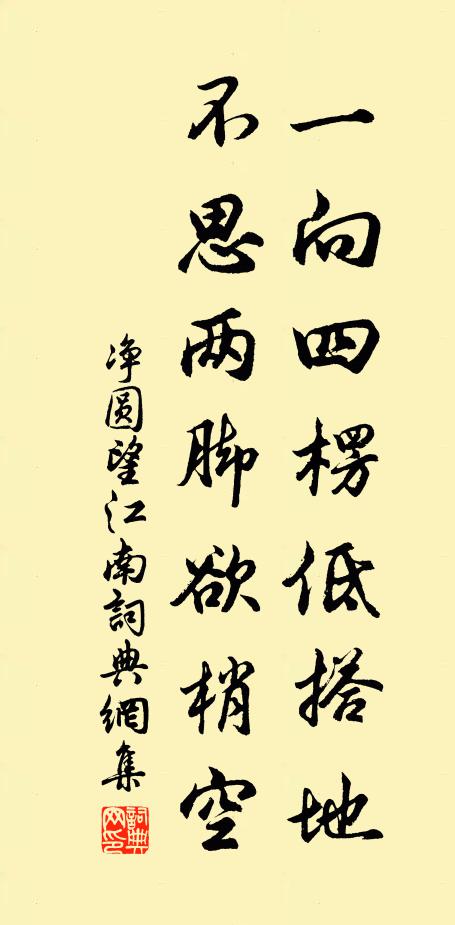 一向四楞低搭地
不思两脚欲梢空
净圆望江南詞典網集
詞典
网印